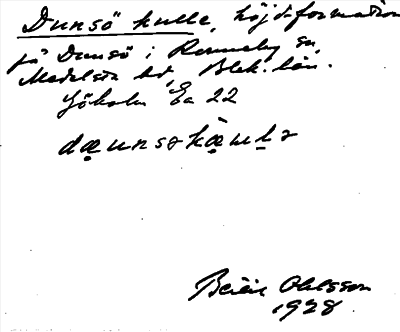 Dunsö kulle, höjdformation
på Dunsö i Ronneby sn,
Medelsta hd, Blek. län.
Sjökolm Ea 22
dæunsøkæm
Ohlsson
1928